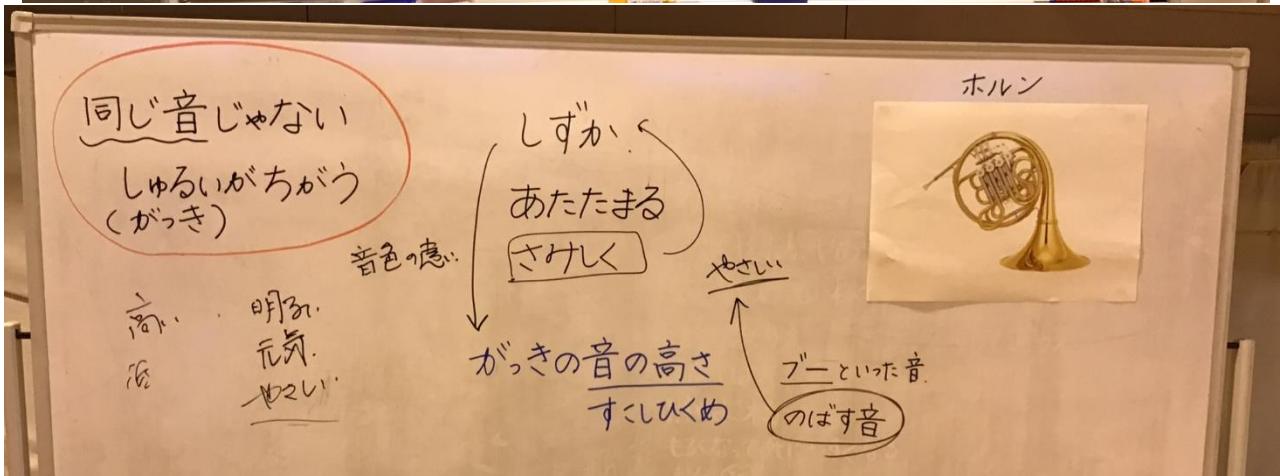 同じ音じゃない
しゅるいがちがう
(がっき)
高い
低
明るい
元気
やさしい
しずか
あたたまる
さみしく
がっきの音の高さ
すこしひくめ
音色の違い
やさしい
ブーといった音
のばす音
ホルン